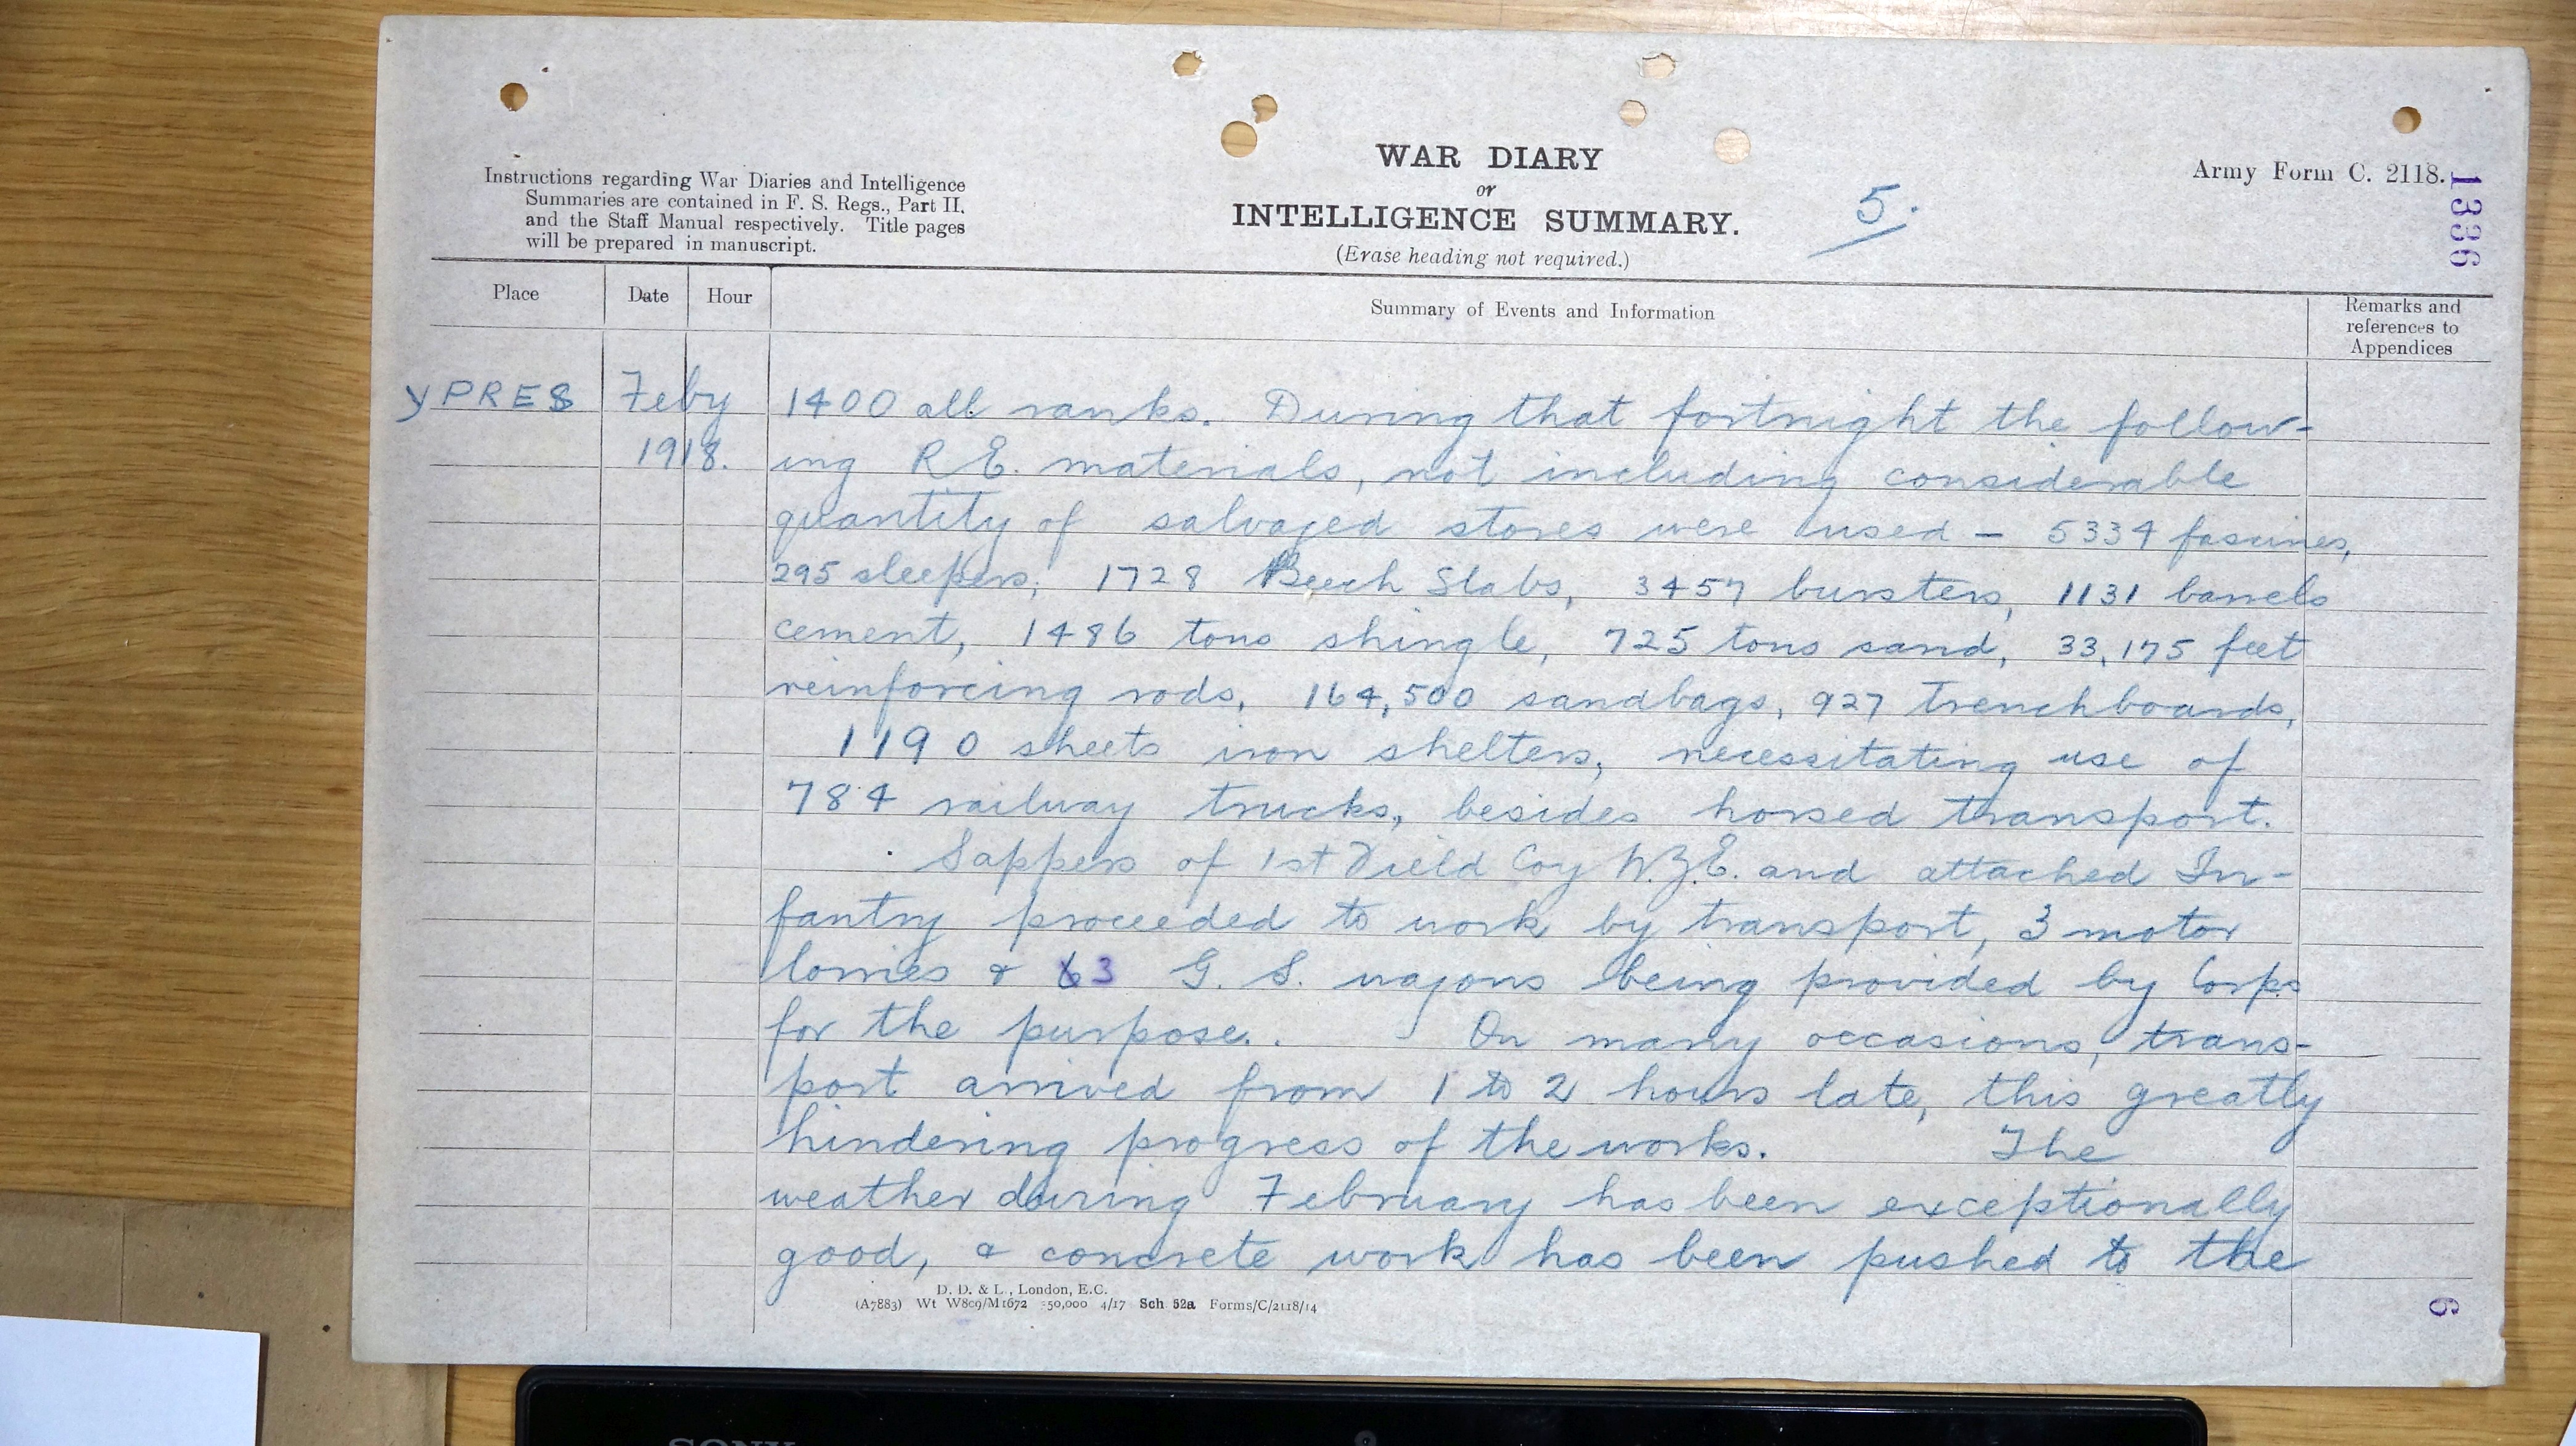 Instructions regarding War Diaries and Intelligence
Summaries are contained in F. S. Regs., Part II.
and the Staff Manual respectively. Title pages
will be prepared in manuscript.
WAR DIARY
or
INTELLIGENCE SUMMARY.
(Erase heading not required.)
5.
Army Form C. 2118.
1336
Place
Date
Hour
Summary of Events and Information
Remarks and
references to
Appendices
YPRES
Feby
1918.
1400 all ranks. During that fortnight the follow-
ing R.E. materials, not including considerable
quantity of salvaged stores were used — 5334 fascines,
295 sleepers, 1728 Beech Slabs, 3457 bursters, 1131 barrels
cement, 1486 tons shingle, 725 tons sand, 33,175 feet
reinforcing rods, 164,500 sandbags, 927 trenchboards,
1190 sheets iron shelters, necessitating use of
784 railway trucks, besides horsed transport.
Sappers of 1st Field Coy N.Z.E. and attached In-
fantry proceeded to work by transport, 3 motor
lorries & 3 G. S. wagons being provided by Corps
for the purpose. On many occasions, trans-
port arrived from 1 to 2 hours late, this greatly
hindering progress of the works. The
weather during February has been exceptionally
good, & concrete work has been pushed to the
D. D. & L., London, E.C.
(A7883) Wt W809/M1672 350,000 4/17 Sch. 52a Forms/C/2118/14
6
SONY